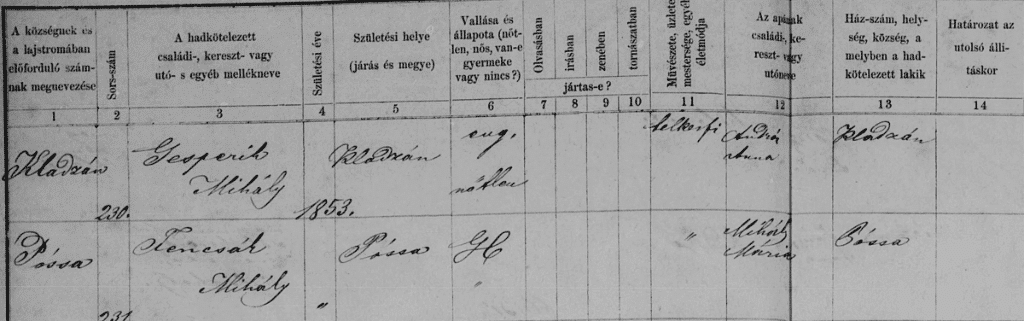 A községnek és
a lajstromában
előforduló szám-
nak megnevezése
Sors-szám
A hadkötelezett
családi-, kereszt- vagy
utó- s egyéb mellékneve
Születési éve
Születési helye
(járás és megye)
Vallása és
állapota (nőt-
len, nős, van-e
gyermeke
vagy nincs?)
Olvasásban
irásban
zenében
tornászatban
jártas-e?
Művészete, üzlete,
mestersége, egyéb
életmódja
Az apának
családi-, ke-
reszt- vagy
utóneve
Ház-szám, hely-
ség, község, a
melyben a had-
kötelezett lakik
Határozat az
utolsó állí-
táskor
1 2 3 4 5 6 7 8 9 10 11 12 13 14
Kladzán
230.
Gesperik
Mihály
1853.
Kladzán
evg.
nőtlen
telkesfi
András
Anna
Kladzán
Póssa
231.
Fencsák
Mihály
"
Póssa
"
Mihály
Mária
Póssa